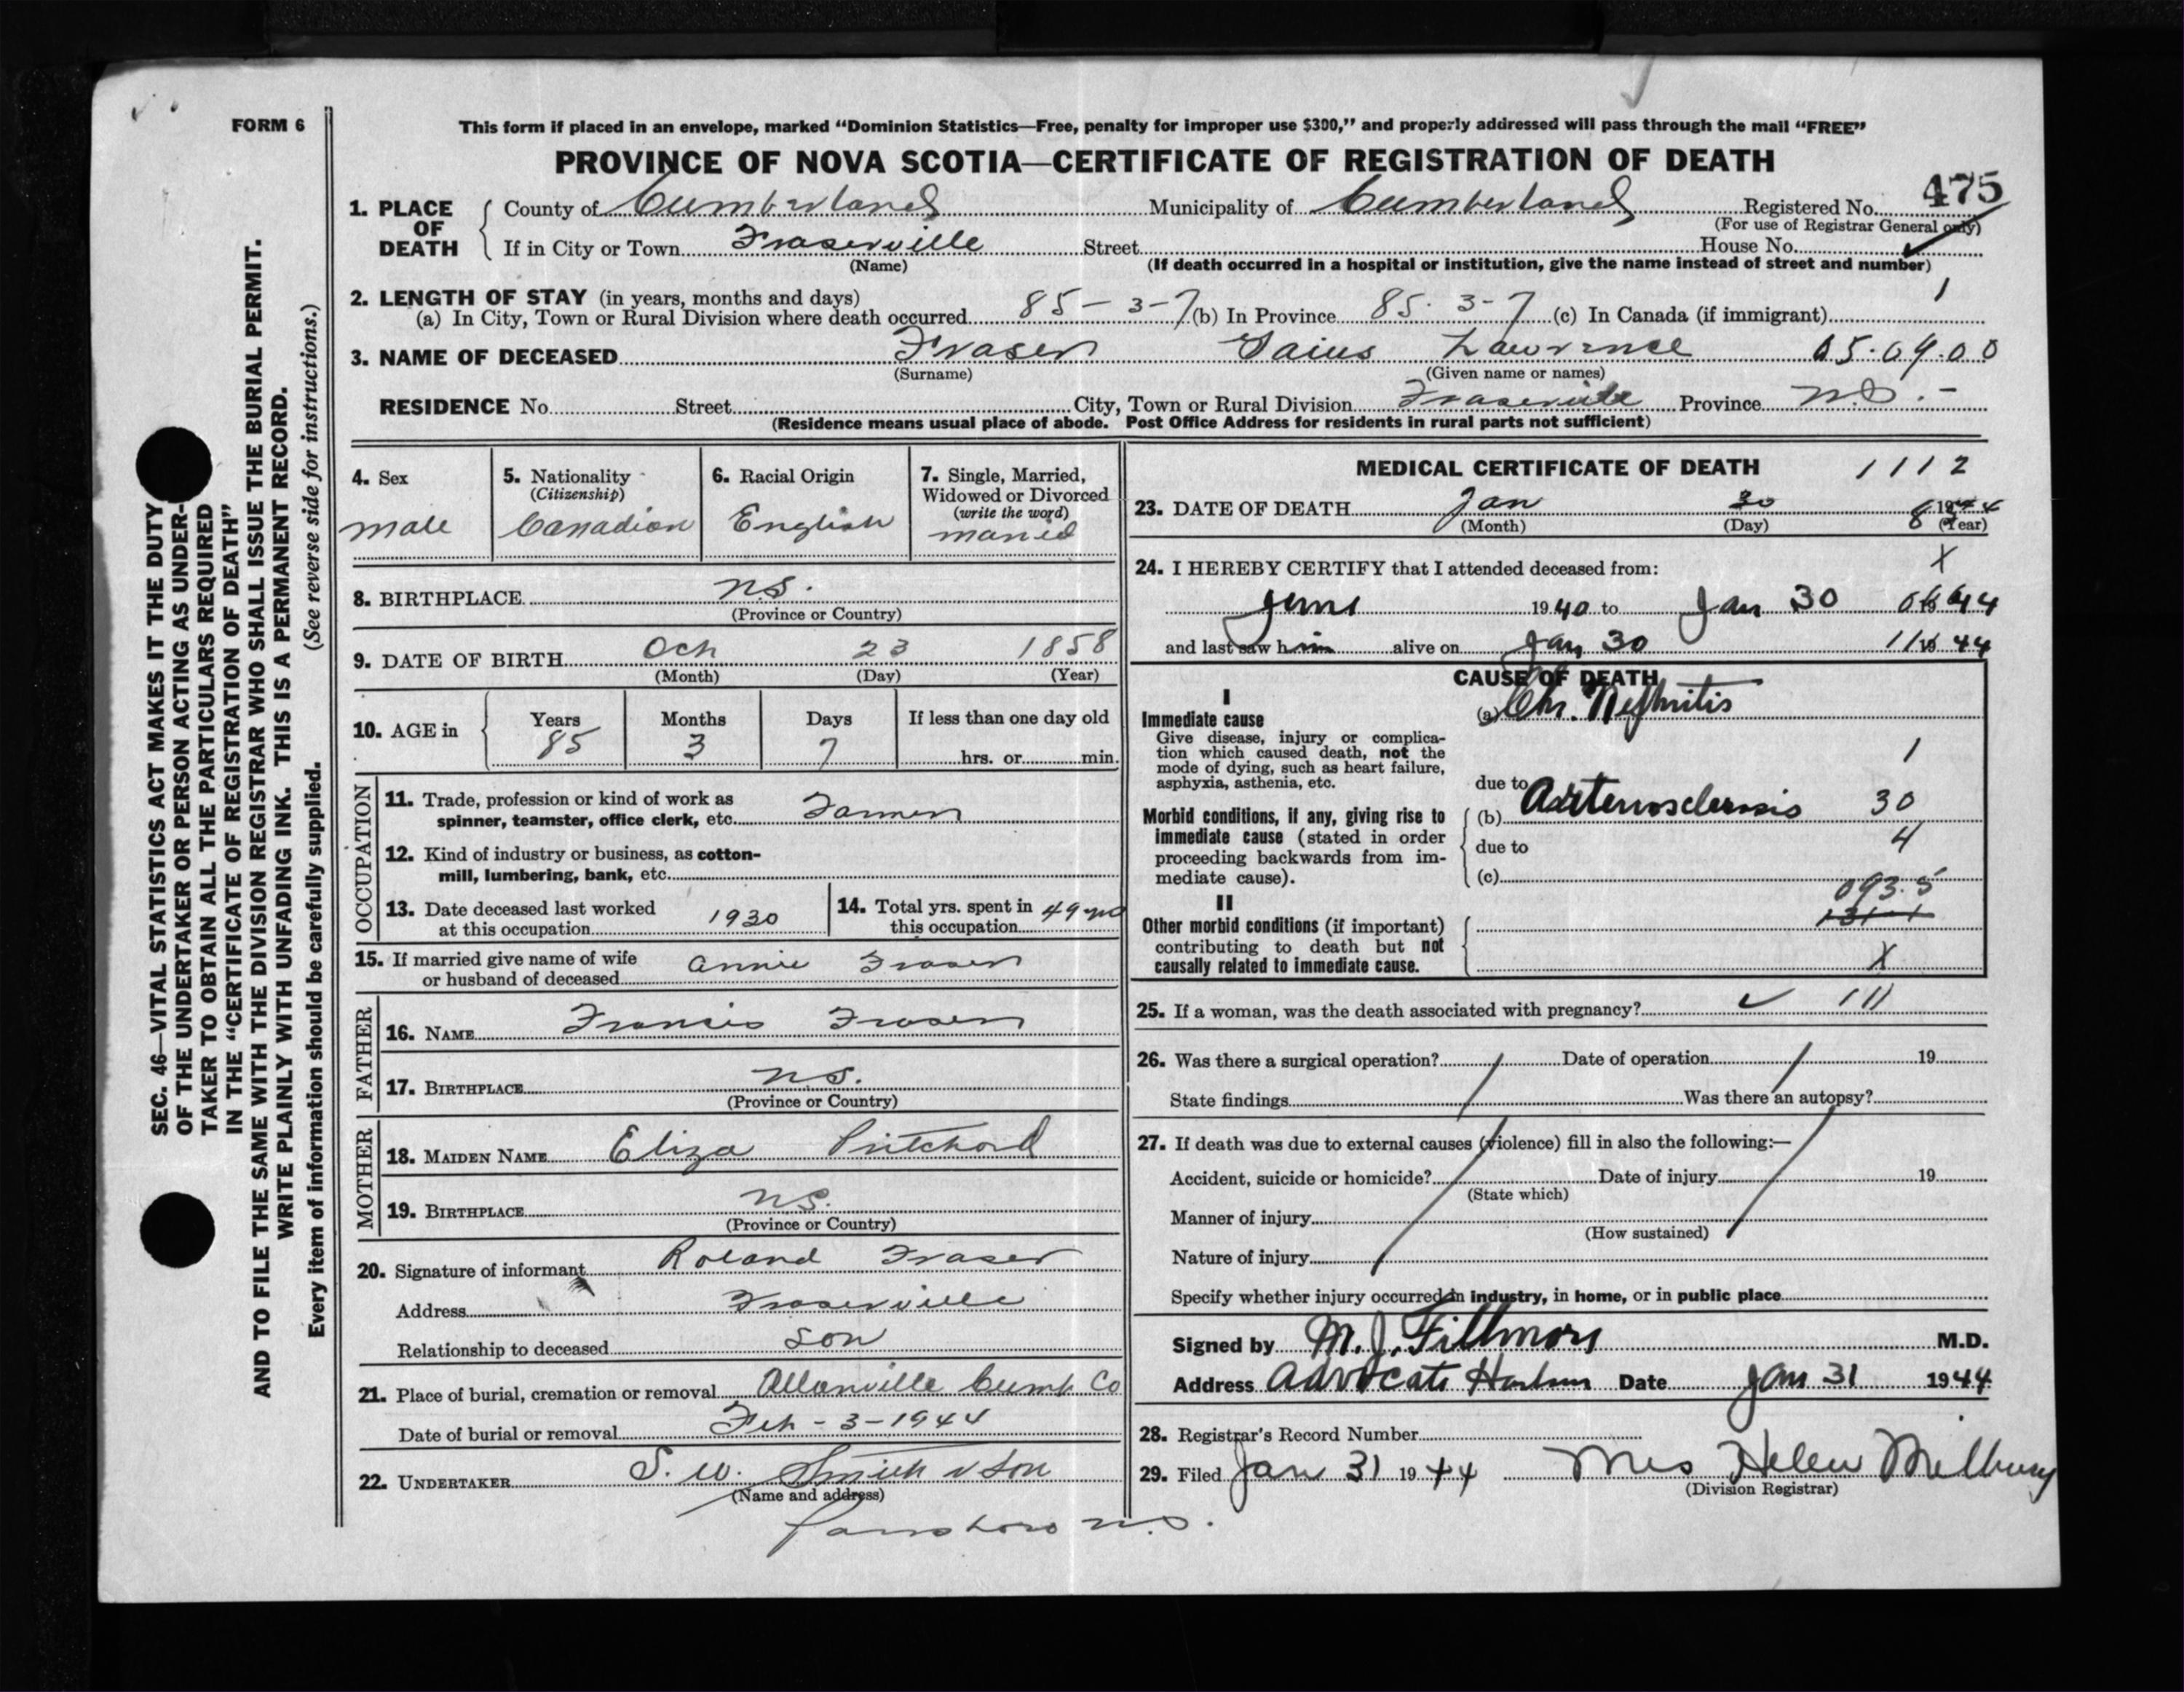 FORM 6
This form if placed in an envelope, marked “Dominion Statistics—Free, penalty for improper use $300,” and properly addressed will pass through the mail “FREE”
PROVINCE OF NOVA SCOTIA—CERTIFICATE OF REGISTRATION OF DEATH
475
1. PLACE OF DEATH County of Cumberland Municipality of Cumberland Registered No.
(For use of Registrar General only)
If in City or Town Fraserville Street House No.
(Name) (If death occurred in a hospital or institution, give the name instead of street and number)
2. LENGTH OF STAY (in years, months and days) 1
(a) In City, Town or Rural Division where death occurred 85-3-7 (b) In Province 85.3-7 (c) In Canada (if immigrant)
3. NAME OF DECEASED Fraser Gaius Lawrence 05.09.00
(Surname) (Given name or names)
RESIDENCE No. Street City, Town or Rural Division Fraserville Province N.S.-
(Residence means usual place of abode. Post Office Address for residents in rural parts not sufficient)
4. Sex
male
5. Nationality
(Citizenship)
Canadian
6. Racial Origin
English
7. Single, Married,
Widowed or Divorced
(write the word)
married
8. BIRTHPLACE N.S.
(Province or Country)
9. DATE OF BIRTH Oct 23 1858
(Month) (Day) (Year)
10. AGE in
Years Months Days If less than one day old
85 3 7 hrs. or min.
OCCUPATION
11. Trade, profession or kind of work as
spinner, teamster, office clerk, etc. Farmer
12. Kind of industry or business, as cotton-
mill, lumbering, bank, etc.
13. Date deceased last worked
at this occupation 1930
14. Total yrs. spent in
this occupation 49
15. If married give name of wife
or husband of deceased Annie Fraser
FATHER
16. NAME Francis Fraser
17. BIRTHPLACE N.S.
(Province or Country)
MOTHER
18. MAIDEN NAME Eliza Pritchard
19. BIRTHPLACE N.S.
(Province or Country)
20. Signature of informant Roland Fraser
Address Fraserville
Relationship to deceased son
21. Place of burial, cremation or removal Allanville Cumb Co
Date of burial or removal Feb-3-1944
22. UNDERTAKER S. W. Smith & Son
(Name and address)
Parrsboro N.S.
MEDICAL CERTIFICATE OF DEATH 1112
23. DATE OF DEATH Jan 30 1944
(Month) (Day) (Year)
24. I HEREBY CERTIFY that I attended deceased from: X
June 1940 to Jan 30 1944
and last saw him alive on Jan 30 1944
CAUSE OF DEATH
I
Immediate cause
Give disease, injury or complica-
tion which caused death, not the
mode of dying, such as heart failure,
asphyxia, asthenia, etc.
(a) Chr. Nephritis
1
due to
Morbid conditions, if any, giving rise to
immediate cause (stated in order
proceeding backwards from im-
mediate cause).
(b) Arteriosclerosis 30
due to 4
(c)
093.5
131-1
II
Other morbid conditions (if important)
contributing to death but not
causally related to immediate cause.
X
25. If a woman, was the death associated with pregnancy? 111
26. Was there a surgical operation? Date of operation 19
State findings Was there an autopsy?
27. If death was due to external causes (violence) fill in also the following:—
Accident, suicide or homicide? Date of injury 19
(State which)
Manner of injury
(How sustained)
Nature of injury
Specify whether injury occurred in industry, in home, or in public place
Signed by M.J. Fillmore M.D.
Address Advocate Harbour Date Jan 31 1944
28. Registrar's Record Number
29. Filed Jan 31 1944 Mrs Helen Milbury
(Division Registrar)
SEC. 46—VITAL STATISTICS ACT MAKES IT THE DUTY
OF THE UNDERTAKER OR PERSON ACTING AS UNDER-
TAKER TO OBTAIN ALL THE PARTICULARS REQUIRED
IN THE “CERTIFICATE OF REGISTRATION OF DEATH”
AND TO FILE THE SAME WITH THE DIVISION REGISTRAR WHO SHALL ISSUE THE BURIAL PERMIT.
WRITE PLAINLY WITH UNFADING INK. THIS IS A PERMANENT RECORD.
Every item of information should be carefully supplied. (See reverse side for instructions.)